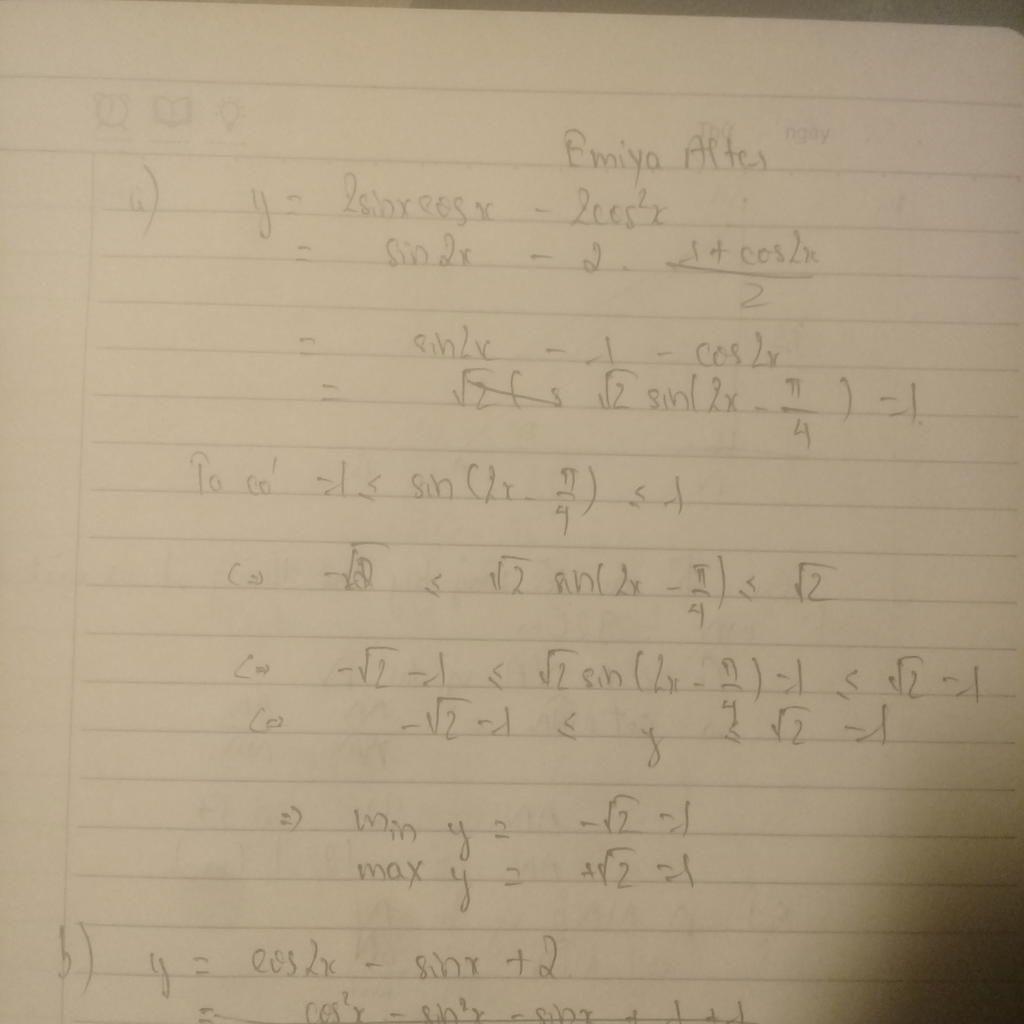 ngày
Emiya Alter
a) y = 2sinxcosx - 2cos²x
= sin2x - 2. (1 + cos2x)/2
= sin2x - 1 - cos2x
= √2 sin(2x - π/4) - 1
Ta có -1 ≤ sin(2x - π/4) ≤ 1
<=> -√2 ≤ √2 sin(2x - π/4) ≤ √2
<=> -√2 - 1 ≤ √2 sin(2x - π/4) - 1 ≤ √2 - 1
<=> -√2 - 1 ≤ y ≤ √2 - 1
=> min y = -√2 - 1
max y = +√2 - 1
b) y = cos2x - sinx + 2
= cos²x - sin²x - sinx + 1 + 1